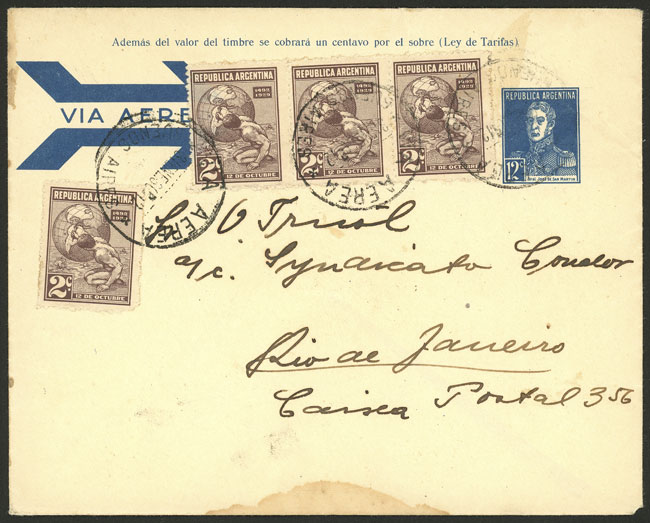 Además del valor del timbre se cobrará un centavo por el sobre (Ley de Tarifas)
VIA AEREA
REPUBLICA ARGENTINA
1492
1929
2c
12 DE OCTUBRE
REPUBLICA ARGENTINA
1492
1929
2c
12 DE OCTUBRE
REPUBLICA ARGENTINA
1492
1929
2c
12 DE OCTUBRE
REPUBLICA ARGENTINA
12c
GRAL. JOSÉ DE SAN MARTIN
AEREA
AEREA
REPUBLICA ARGENTINA
1492
1929
2c
12 DE OCTUBRE
Sr. O Truol
a/c. Syndicato Condor
Rio de Janeiro
Caixa Postal 356